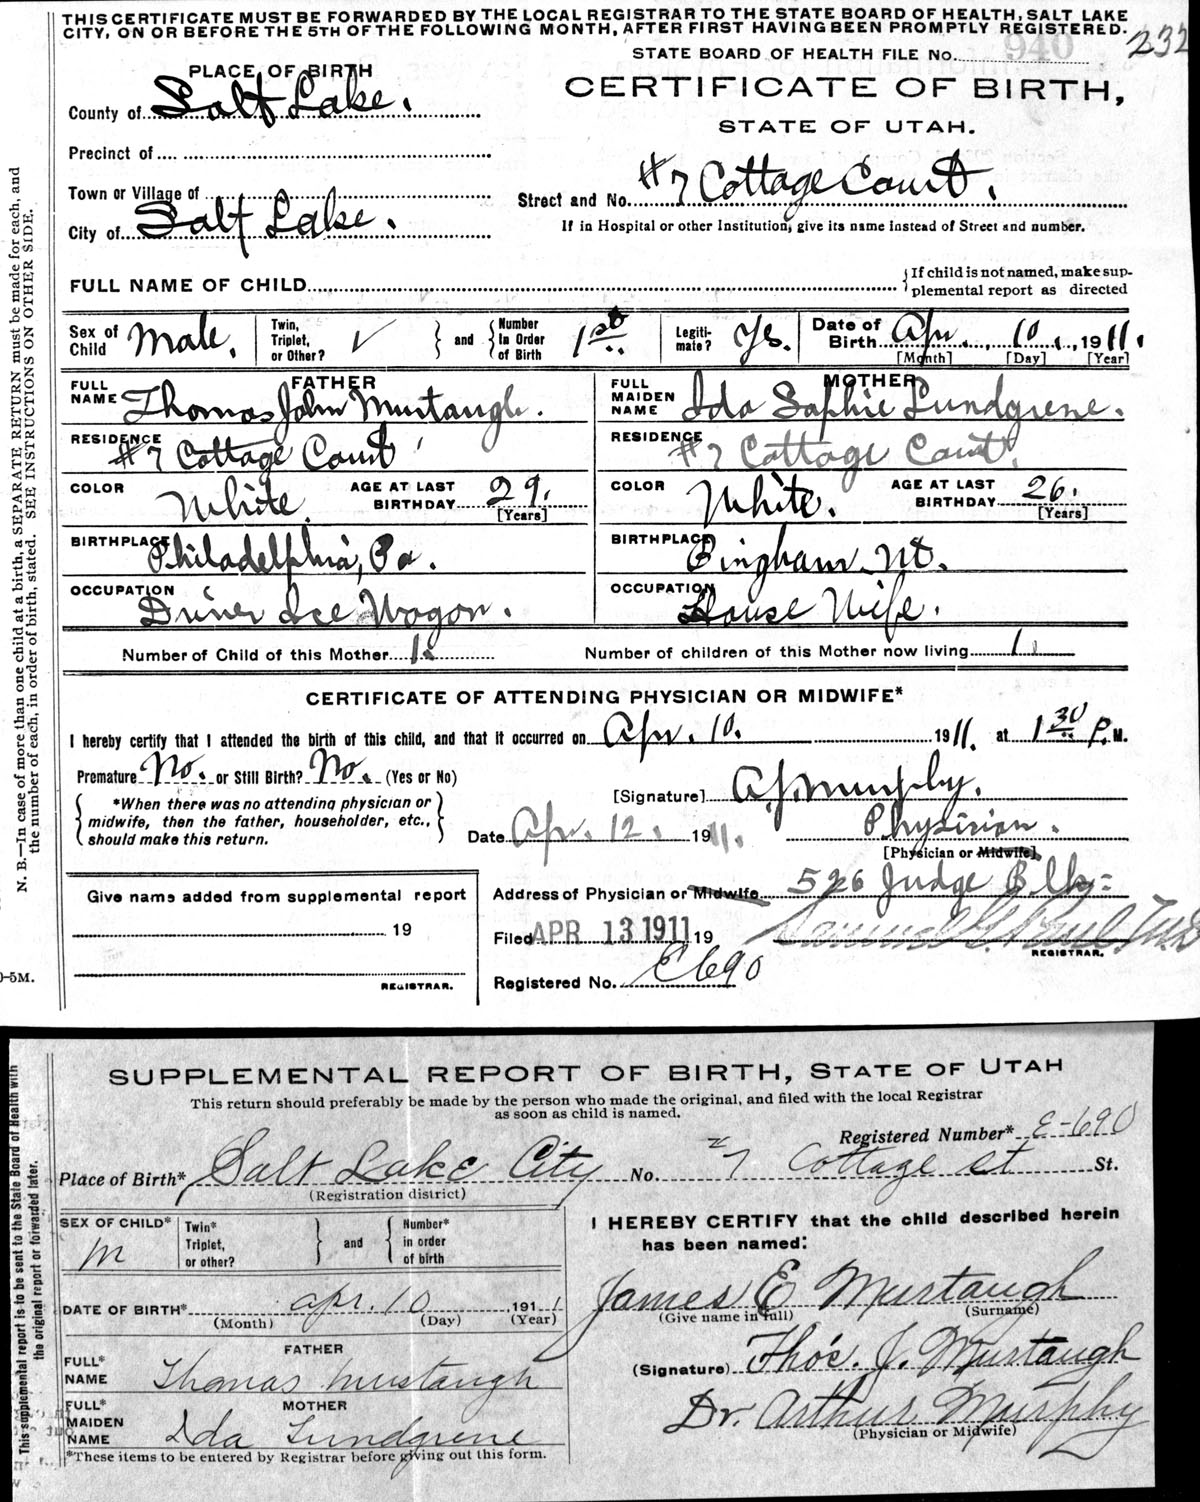 THIS CERTIFICATE MUST BE FORWARDED BY THE LOCAL REGISTRAR TO THE STATE BOARD OF HEALTH, SALT LAKE
CITY, ON OR BEFORE THE 5TH OF THE FOLLOWING MONTH, AFTER FIRST HAVING BEEN PROMPTLY REGISTERED.
232
STATE BOARD OF HEALTH FILE No. 940
PLACE OF BIRTH
CERTIFICATE OF BIRTH,
County of Salt Lake.
STATE OF UTAH.
Precinct of
Town or Village of
Street and No. #7 Cottage Court.
City of Salt Lake.
If in Hospital or other Institution, give its name instead of Street and number.
FULL NAME OF CHILD
If child is not named, make sup-
plemental report as directed
Sex of Child Male.
Twin, Triplet, or Other? √
and Number In Order of Birth 1st
Legiti-mate? Yes.
Date of Birth Apr. 10, 1911.
[Month] [Day] [Year]
FATHER
FULL NAME Thomas John Murtaugh.
MOTHER
FULL MAIDEN NAME Ida Sophie Lundgrene.
RESIDENCE #7 Cottage Court
RESIDENCE #7 Cottage Court.
COLOR White.
AGE AT LAST BIRTHDAY 29. [Years]
COLOR White.
AGE AT LAST BIRTHDAY 26. [Years]
BIRTHPLACE Philadelphia, Pa.
BIRTHPLACE Bingham Ut.
OCCUPATION Driver Ice Wagon.
OCCUPATION House Wife.
Number of Child of this Mother 1.
Number of children of this Mother now living 1
CERTIFICATE OF ATTENDING PHYSICIAN OR MIDWIFE*
I hereby certify that I attended the birth of this child, and that it occurred on Apr. 10. 1911. at 1 30 P. M.
Premature No. or Still Birth? No. (Yes or No)
*When there was no attending physician or
midwife, then the father, householder, etc.,
should make this return.
[Signature] A J Murphy.
Date Apr. 12. 1911.
Physician.
[Physician or Midwife]
Give name added from supplemental report
19
REGISTRAR.
Address of Physician or Midwife 526 Judge Blk.
Filed APR 13 1911 19
REGISTRAR.
Registered No. E690
N. B.—In case of more than one child at a birth, a SEPARATE RETURN must be made for each, and
the number of each, in order of birth, stated. SEE INSTRUCTIONS ON OTHER SIDE.
-5M.
SUPPLEMENTAL REPORT OF BIRTH, STATE OF UTAH
This return should preferably be made by the person who made the original, and filed with the local Registrar
as soon as child is named.
Registered Number* E-690
Place of Birth* Salt Lake City No. #7 Cottage Ct St.
(Registration district)
SEX OF CHILD* M
Twin* Triplet, or other?
and Number* in order of birth
I HEREBY CERTIFY that the child described herein
has been named:
DATE OF BIRTH* Apr. 10 1911
(Month) (Day) (Year)
James E Murtaugh
(Give name in full) (Surname)
FATHER
FULL* NAME Thomas Murtaugh
(Signature) Thos. J. Murtaugh
MOTHER
FULL* MAIDEN NAME Ida Lundgrene
Dr. Arthur Murphy
(Physician or Midwife)
*These items to be entered by Registrar before giving out this form.
This supplemental report is to be sent to the State Board of Health with
the original report or forwarded later.